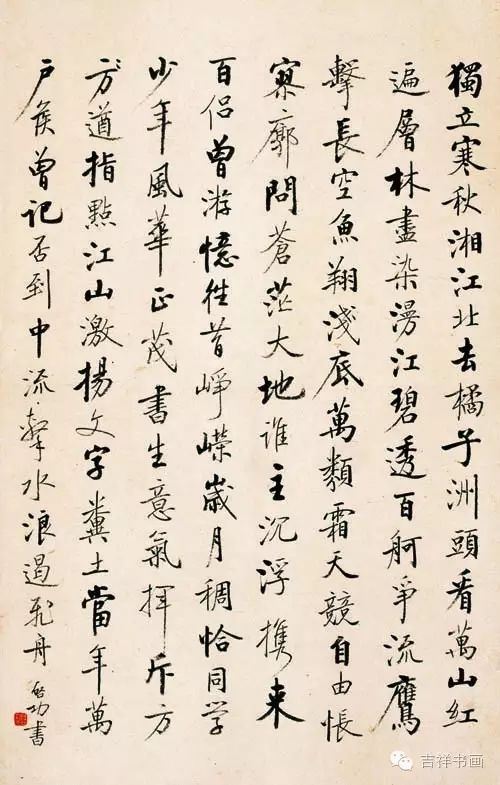 獨立寒秋湘江北去橘子洲頭看萬山紅
遍層林盡染漫江碧透百舸爭流鷹
擊長空魚翔淺底萬類霜天競自由悵
寥廓問蒼茫大地誰主沉浮攜来
百侣曾游憶往昔崢嶸歲月稠恰同学
少年風華正茂書生意氣揮斥方
方遒指點江山激揚文字糞土當年萬
户侯曾記否到中流擊水浪遏飛舟 启功書
吉祥书画